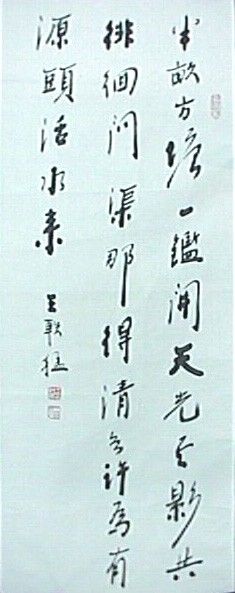 半畝方塘一鑑開天光雲影共
徘徊问渠那得清如許為有
源頭活水來
王联猛